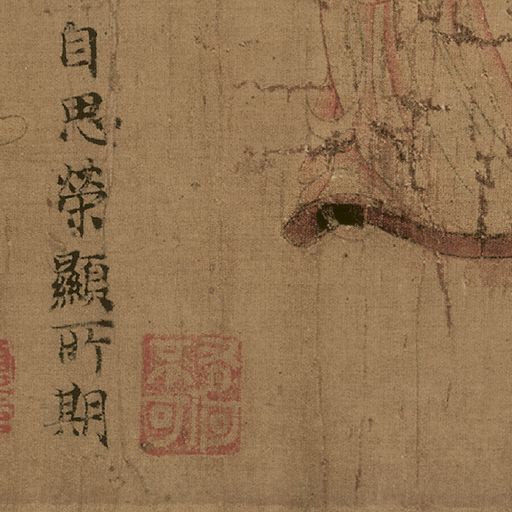 自思榮顯所期